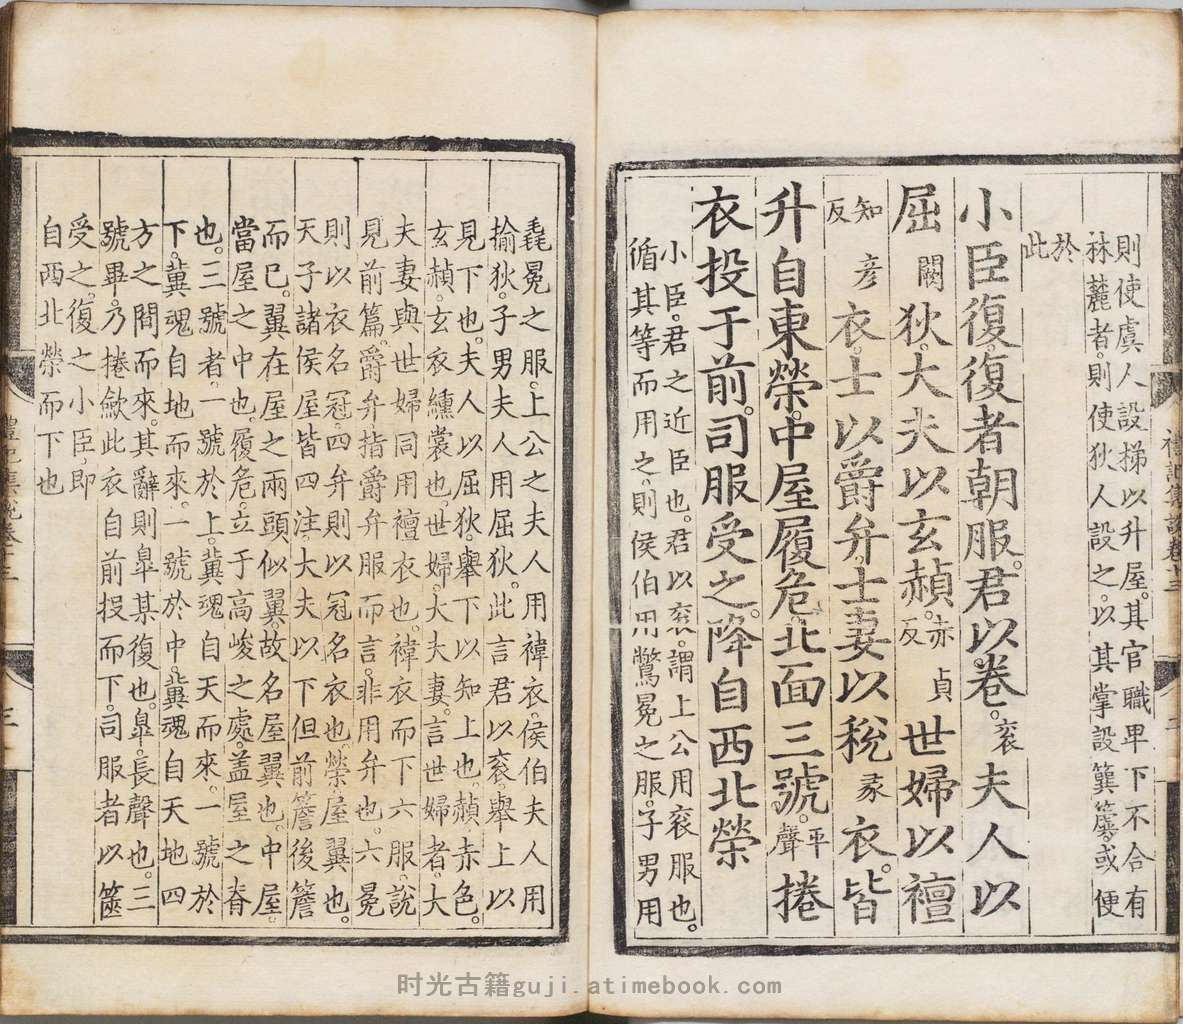 則使虞人設梯以升屋。其官職卑下不合有
林麓者。則使狄人設之。以其掌設簨簴。或便
於
此
小臣復復者朝服。君以卷。衮夫人以
屈闕狄。大夫以玄赬。赤貞反世婦以襢
知彥反衣。士以爵弁。士妻以稅彖衣。皆
升自東榮。中屋履危。北面三號。平聲捲
衣投于前。司服受之。降自西北榮
小臣。君之近臣也。君以衮。謂上公用衮服也。
循其等而用之。則侯伯用鷩冕之服。子男用
毳冕之服。上公之夫人用褘衣。侯伯夫人用
揄狄。子男夫人用屈狄。此言君以衮。舉上以
見下也。夫人以屈狄。舉下以知上也。赬赤色。
玄赬。玄衣纁裳也。世婦。大夫妻。言世婦者。大
夫妻與世婦同用襢衣也。褘衣而下六服。說
見前篇。爵弁。指爵弁服而言。非用弁也。六冕
則以衣名冠。四弁則以冠名衣也。榮屋翼也。
天子諸侯屋皆四注。大夫以下但前簷後簷
而已。翼在屋之兩頭似翼。故名屋翼也。中屋。
當屋之中也。履危。立于高峻之處。蓋屋之脊
也。三號者。一號於上。冀魂自天而來。一號於
下。冀魂自地而來。一號於中。冀魂自天地四
方之間而來。其辭則臯某復也。臯。長聲也。三
號畢。乃捲斂此衣自前投而下。司服者以篋
受之。復之小臣。即
自西北榮而下也
禮記集說卷十三
二
禮記集說卷十三
三
时光古籍guji.atimebook.com